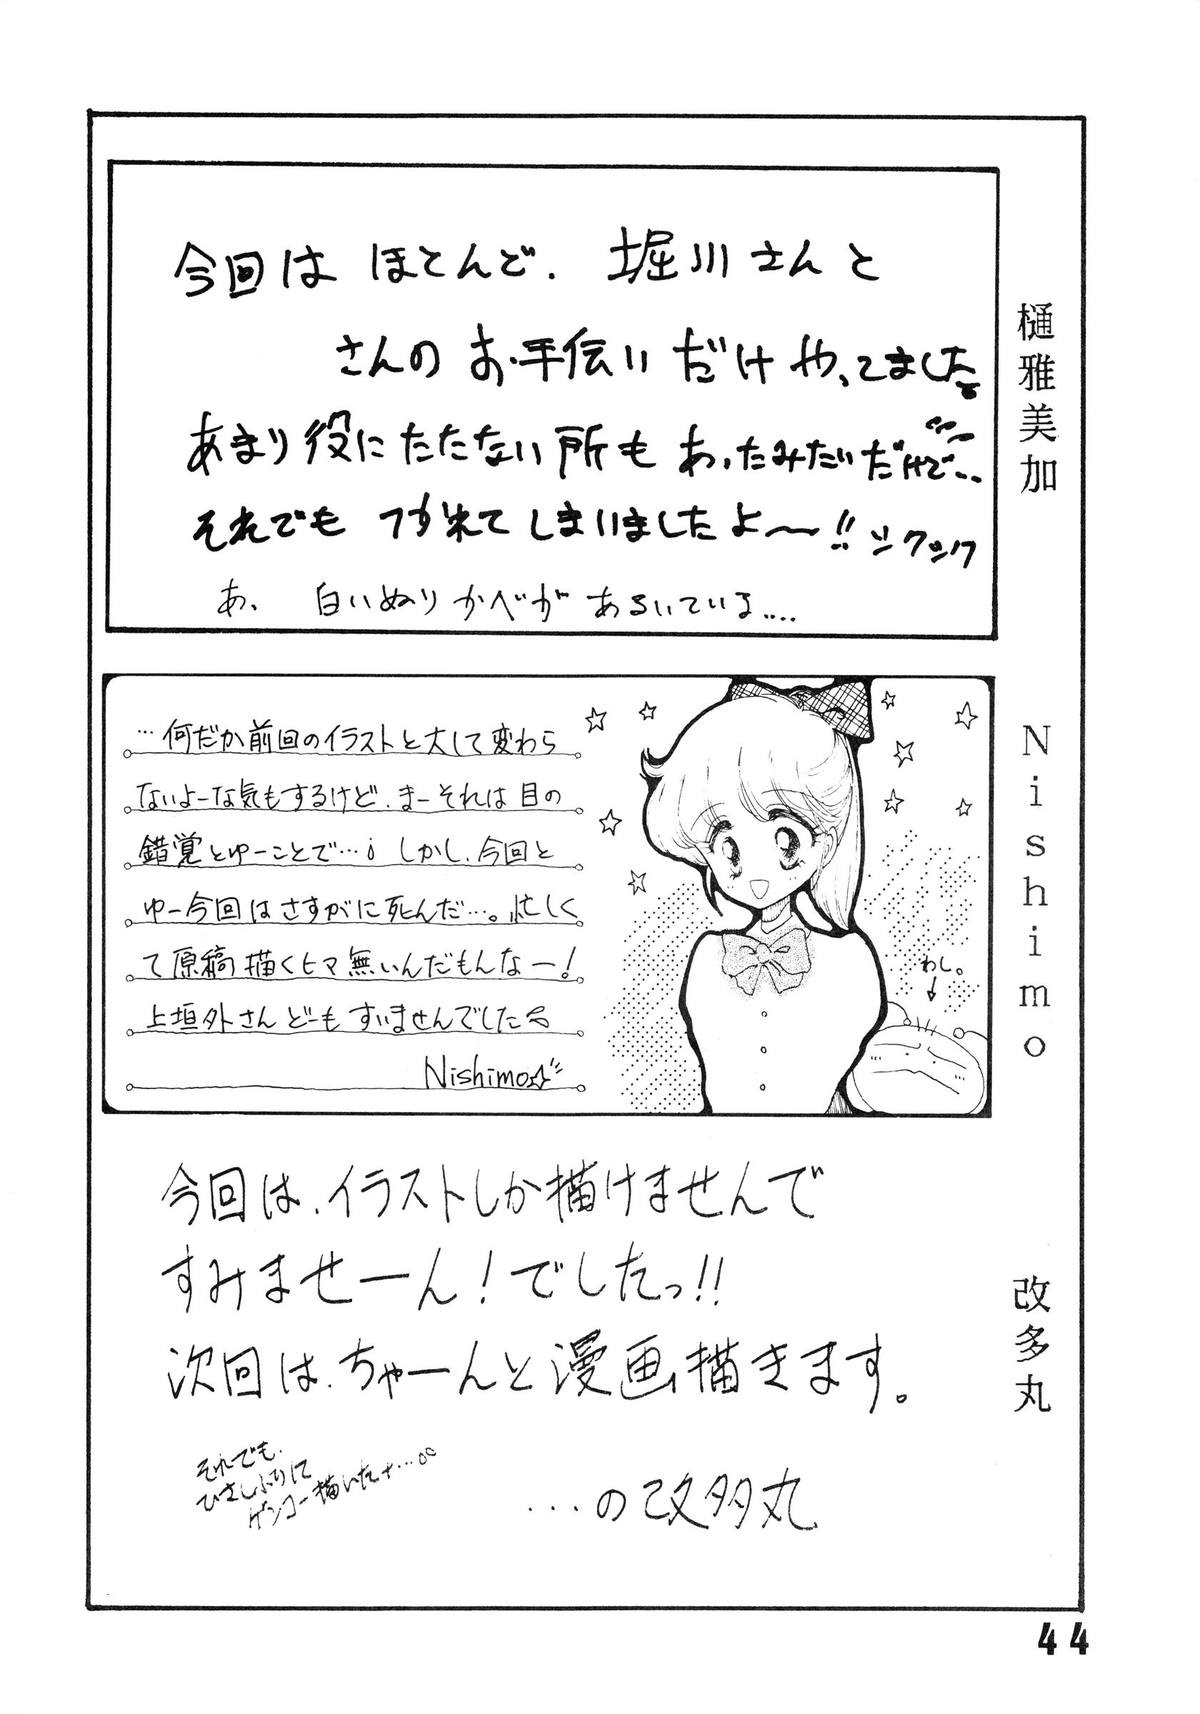 樋雅美加
今回は ほとんど、堀川さんと
さんの お手伝い だけ やってました
あまり役にたたない所も あったみたいだけど…
それでも つかれてしまいましたよ〜!! シクシク
あ、 白いぬりかべが あるいている....
Nishimo
…何だか前回のイラストと大して変わら
ないよーな気もするけど、まーそれは目の
錯覚とゆーことで…。しかし、今回と
ゆー今回はさすがに死んだ…。忙しく
て原稿描くヒマ無いんだもんなー!
上垣外さん どーも すいませんでした
Nishimo☆
わし。
改多丸
今回は、イラストしか描けませんで
すみませーん!でしたっ!!
次回は、ちゃーんと漫画描きます。
それでも、
ひさしぶりに
ゲンコー描いたナ…。。
…の改多丸
44